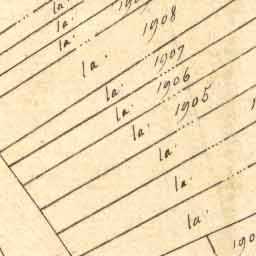 la.
la.
la.
la. 1908
la. 1907
la. 1906
la. 1905
la.
la.
la.